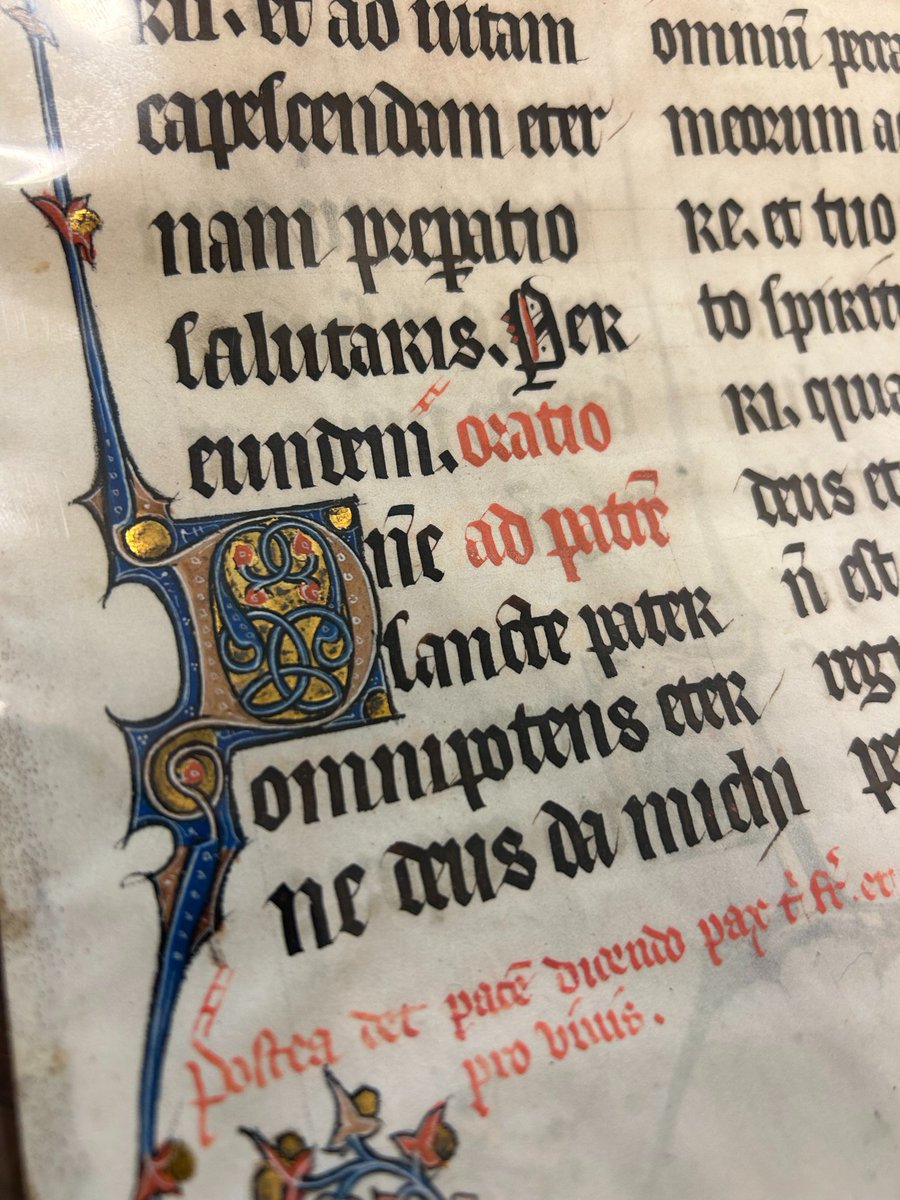 et ad uitam
capescendam eter
nam preꝑatio
salutaris. Per
eundem. oratio
Dn̄e ad patrē
sancte pater
omnipotens eter
ne deus da michi
omniū pecca
meorum ac
re. et tuo
to spiritu
ri. quia
deus et
n̄ est
regn
pe
Postea det pacē dicendo pax et
pro viuis.